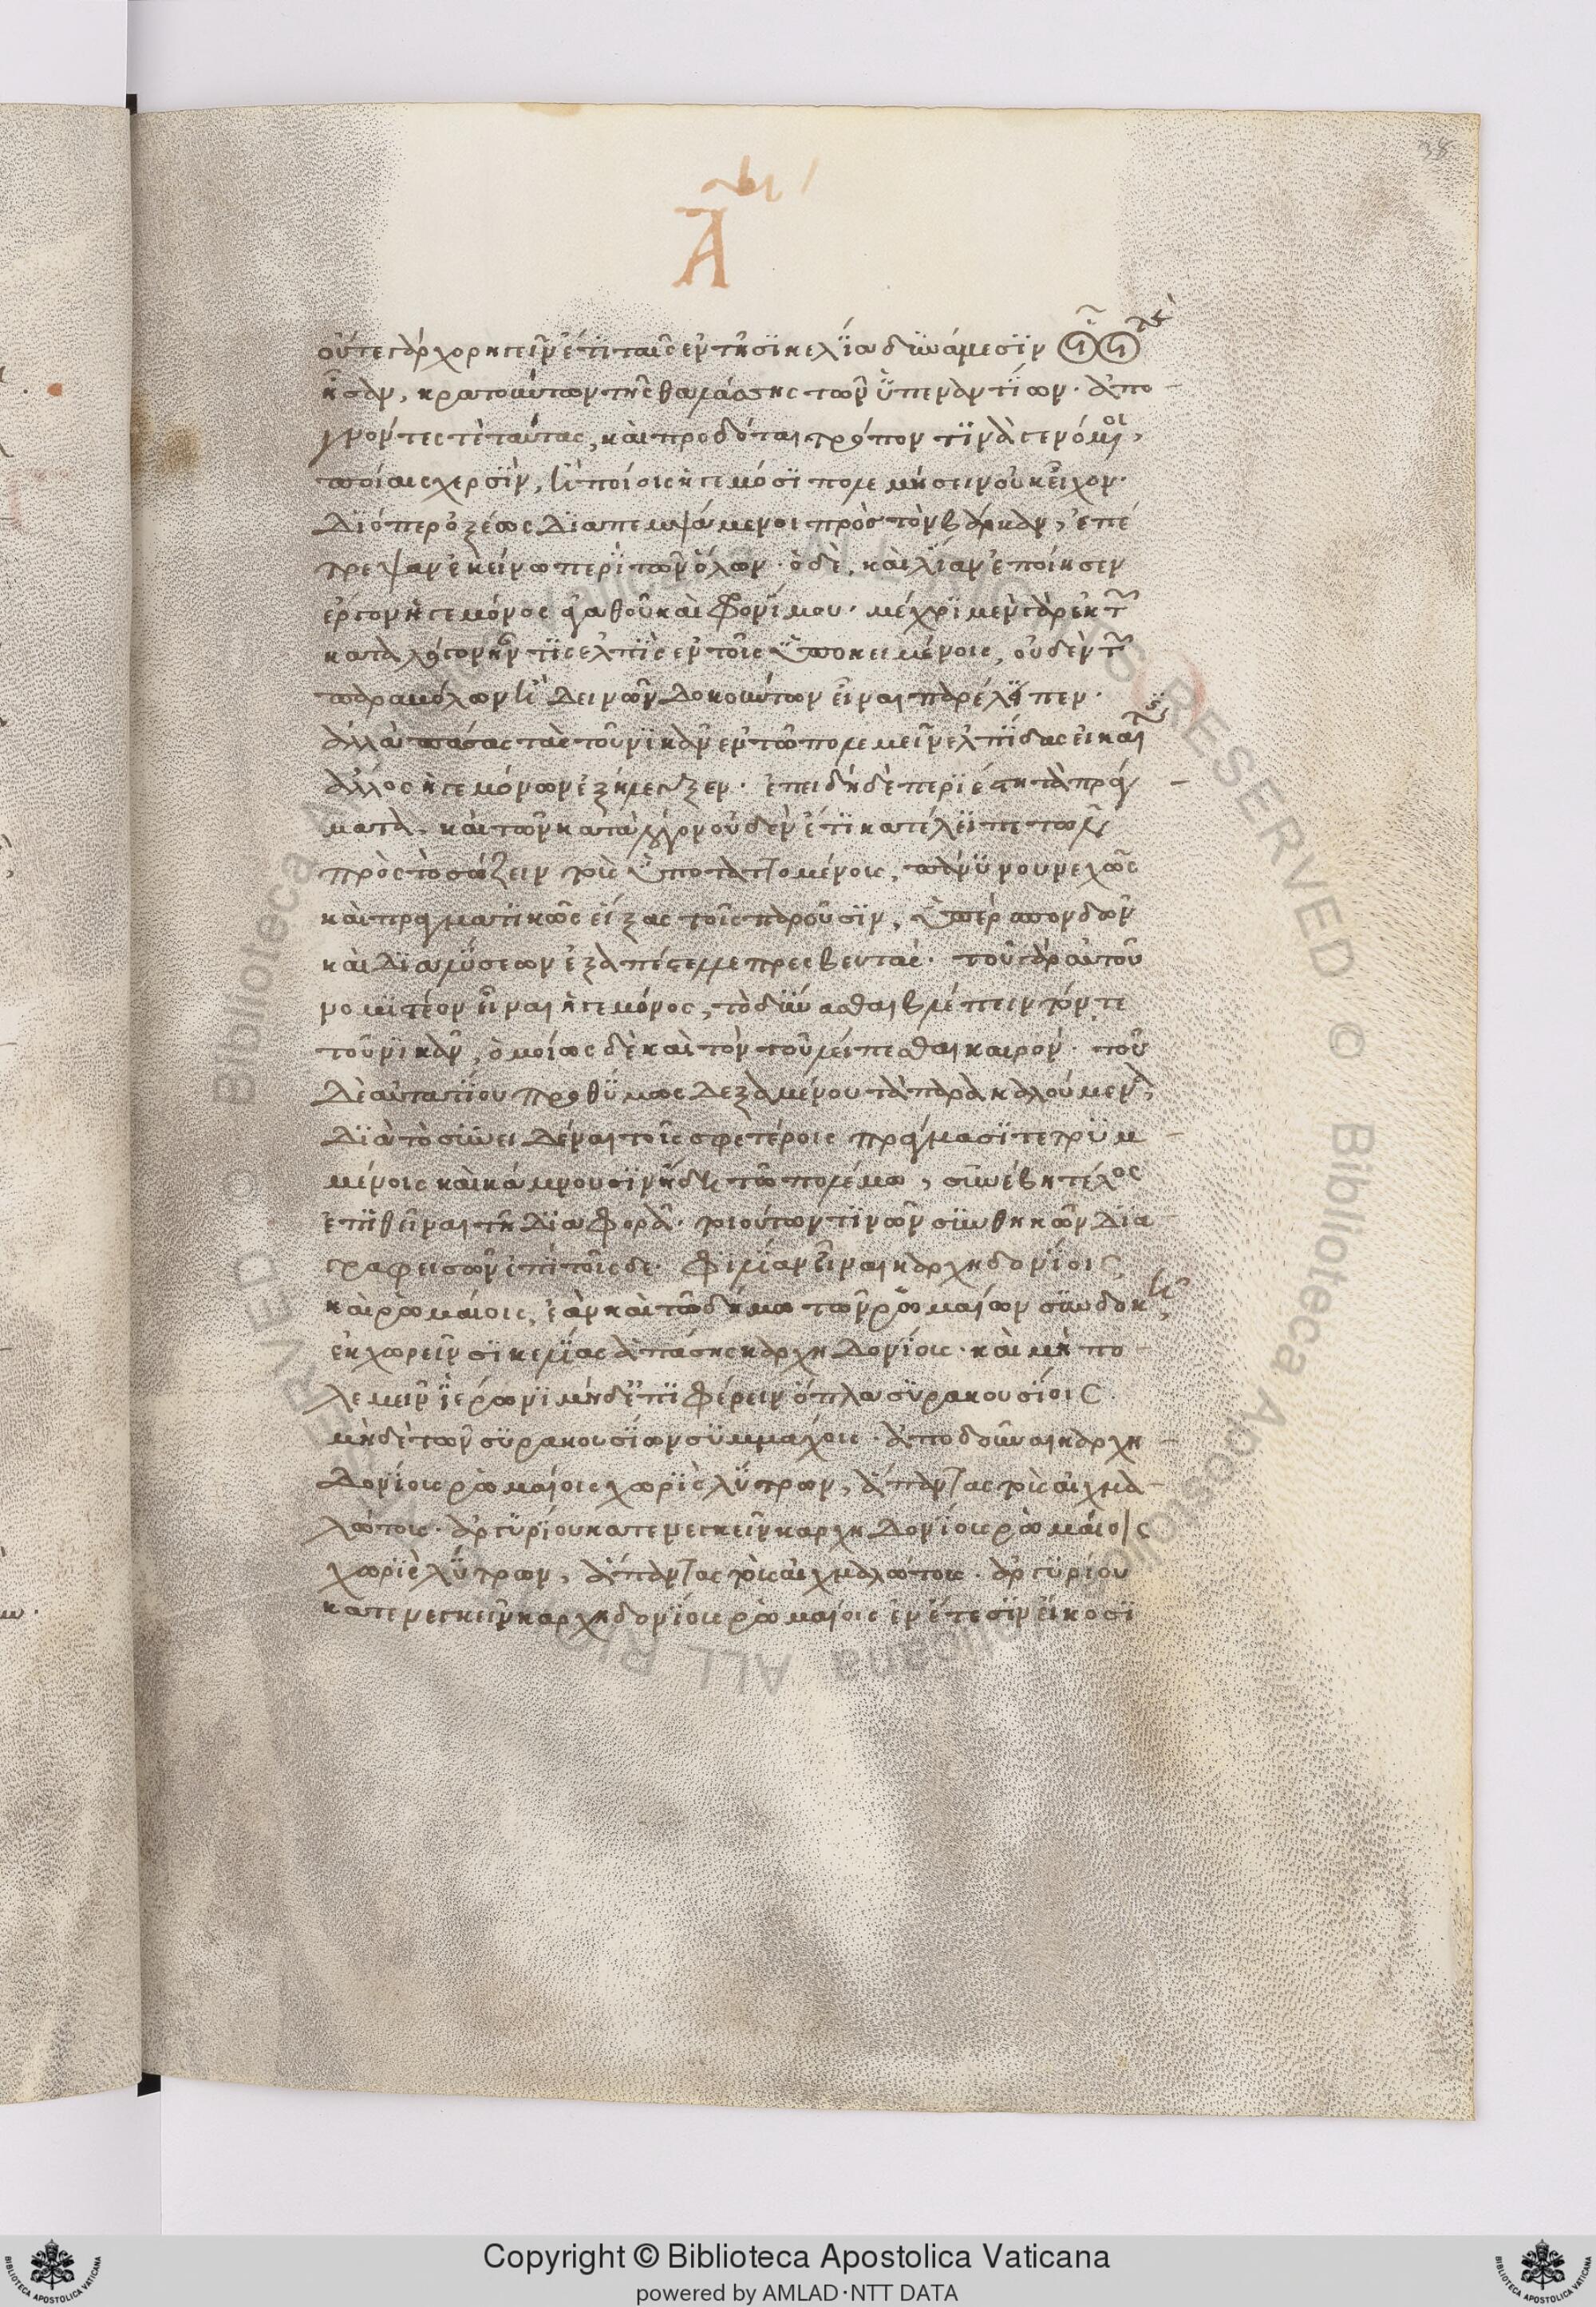 Ᾱ
οὔτε γὰρ χορηγεῖν ἔτι ταῖς ἐν τῇ σικελίᾳ δυνάμεσιν
ἦσαν, κρατούντων τῆς θαλάσσης τῶν ὑπεναντίων· ἀπο
γνόντες τὲ ταύτας, καὶ προδόται τρόπον τινὰ γενόμενοι,
ποίαις χερσὶν, ἢ ποίοις ἡγεμόσι πολεμήσειν οὐκ εἶχον·
διόπερ ὀξέως διαπεμψάμενοι πρὸς τὸν βάρκαν, ἐπέ
τρεψαν ἐκείνω περὶ τῶν ὅλων· ὁ δὲ, καὶ λίαν ἐποίησεν
ἔργον ἡγεμόνος ἀγαθοῦ καὶ φρονίμου· μέχρι μὲν γὰρ ἐκ τῶν
κατὰ λόγον ἦν τις ἐλπὶς ἐν τοῖς ὑποκειμένοις, οὐδὲν τῶν
παραβόλων ἢ δεινῶν δοκούντων εἶναι παρέλιπεν·
ἀλλὰ πάσας τὰς τοῦ νικᾶν ἐν τῶ πολεμεῖν ἐλπίδας εἰ καί τις
ἄλλος ἡγεμόνων ἐξήλεγξεν· ἐπειδὴ δὲ περιέστη τὰ πράγ
ματα, καὶ τῶν κατὰ λόγον οὐδὲν ἔτι κατέλειπε τῶν
πρὸς τὸ σώζειν τοὺς ὑποταττομένους, πάνυ νουνεχῶς
καὶ πραγματικῶς εἴξας τοῖς παροῦσιν, ὑπὲρ σπονδῶν
καὶ διαλύσεων ἐξαπέστελλε πρεσβευτάς· τοῦ γὰρ αὐτοῦ
νομιστέον εἶναι ἡγεμόνος, τὸ δύνασθαι βλέπειν τόν τε
τοῦ νικᾶν, ὁμοίως δὲ καὶ τὸν τοῦ λείπεσθαι καιρόν· τοῦ
δὲ λυτατίου προθύμως δεξαμένου τὰ παρακαλούμενα,
διὰ τὸ συνειδέναι τοῖς σφετέροις πράγμασι τετρυμ
μένοις καὶ κάμνουσιν ἤδη τῶ πολέμω, συνέβη τέλος
ἐπιθεῖναι τῇ διαφορᾷ· τοιούτων τινῶν συνθηκῶν δια
γραφεισῶν ἐπὶ τοῖσδε· φιλίαν εἶναι καρχηδονίοις
καὶ ῥωμαίοις, ἐὰν καὶ τῶ δήμω τῶν ῥωμαίων συνδοκῆ,
ἐκχωρεῖν σικελίας ἁπάσης καρχηδονίους· καὶ μὴ πο
λεμεῖν ἱέρωνι μηδ' ἐπιφέρειν ὅπλα συρακουσίοις
μηδὲ τῶν συρακουσίων συμμάχοις· ἀποδοῦναι καρχη
δονίους ῥωμαίοις χωρὶς λύτρων, ἅπαντας τοὺς αἰχμα
λώτους· ἀργυρίου κατενεγκεῖν καρχηδονίους ῥωμαίοις
χωρὶς λύτρων, ἅπαντας τοὺς αἰχμαλώτους· ἀργυρίου
κατενεγκεῖν καρχηδονίους ῥωμαίοις ἐν ἔτεσιν εἴκοσι
Copyright © Biblioteca Apostolica Vaticana
powered by AMLAD·NTT DATA